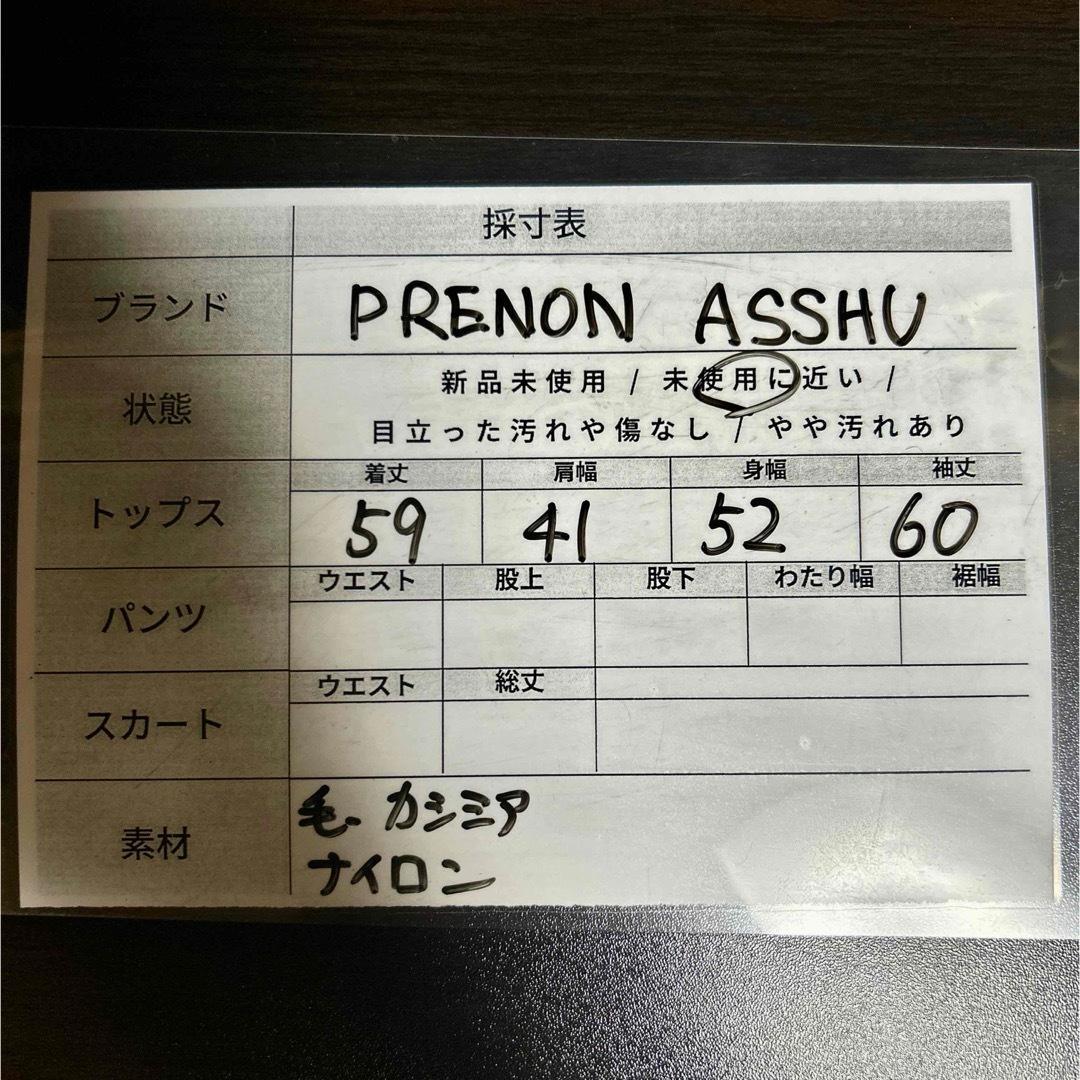 採寸表
ブランド PRENON ASSHU
状態 新品未使用 / 未使用に近い /
目立った汚れや傷なし / やや汚れあり
トップス 着丈 肩幅 身幅 袖丈
59 41 52 60
パンツ ウエスト 股上 股下 わたり幅 裾幅
スカート ウエスト 総丈
素材 毛、カシミア
ナイロン